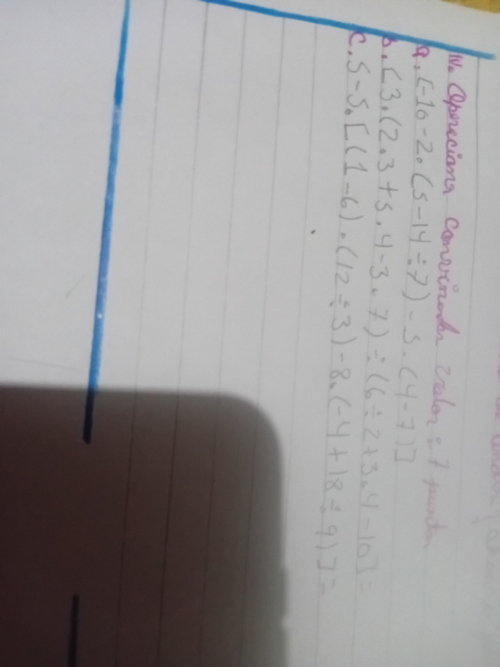 IV. Operaciones convinadas valor: 7 puntos
a. [-10-2.(5-14÷7)-5.(4-7)]
b. [3.(2.3+5.4-3.7)÷(6÷2+3.4-10]=
c. 5-5.[(1-6).(12÷3)-8.(-4+18÷9)]=